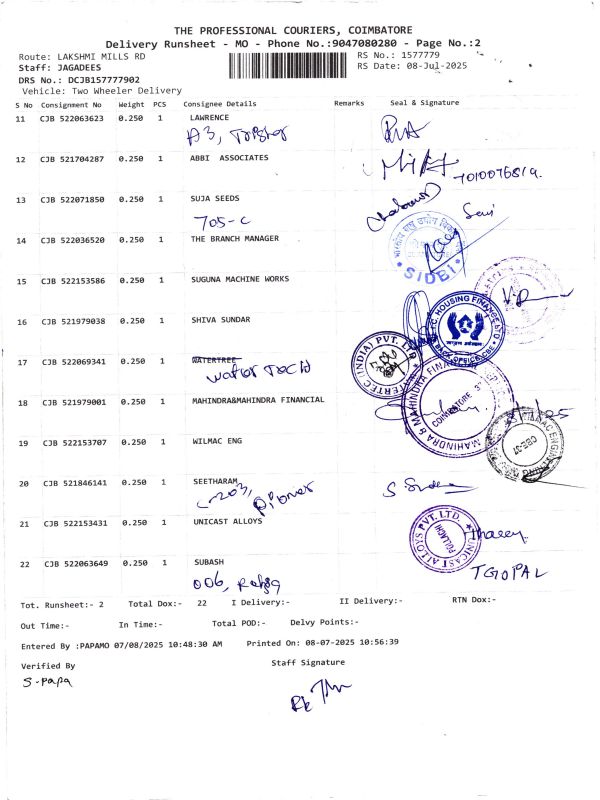 THE PROFESSIONAL COURIERS, COIMBATORE
Delivery Runsheet - MO - Phone No.:9047080280 - Page No.:2
Route: LAKSHMI MILLS RD
RS No.: 1577779
Staff: JAGADEES
RS Date: 08-Jul-2025
DRS No.: DCJB157777902
Vehicle: Two Wheeler Delivery
S No Consignment No Weight PCS Consignee Details Remarks Seal & Signature
11 CJB 522063623 0.250 1 LAWRENCE
A3,
12 CJB 521704287 0.250 1 ABBI ASSOCIATES
7010076819.
13 CJB 522071850 0.250 1 SUJA SEEDS
705-C
14 CJB 522036520 0.250 1 THE BRANCH MANAGER
SIDBI
15 CJB 522153586 0.250 1 SUGUNA MACHINE WORKS
16 CJB 521979038 0.250 1 SHIVA SUNDAR
HOUSING FINANCE LTD
17 CJB 522069341 0.250 1 WATERTREE
water Tech
(INDIA) PVT. LTD
18 CJB 521979001 0.250 1 MAHINDRA&MAHINDRA FINANCIAL
MAHINDRA & MAHINDRA FINANCIAL
COIMBATORE
19 CJB 522153707 0.250 1 WILMAC ENG
20 CJB 521846141 0.250 1 SEETHARAM
203,
21 CJB 522153431 0.250 1 UNICAST ALLOYS
UNICAST ALLOYS PVT. LTD.
POLLACHI
22 CJB 522063649 0.250 1 SUBASH
006,
T GOPAL
Tot. Runsheet:- 2 Total Dox:- 22 I Delivery:- II Delivery:- RTN Dox:-
Out Time:- In Time:- Total POD:- Delvy Points:-
Entered By :PAPAMO 07/08/2025 10:48:30 AM Printed On: 08-07-2025 10:56:39
Verified By Staff Signature
S-papa